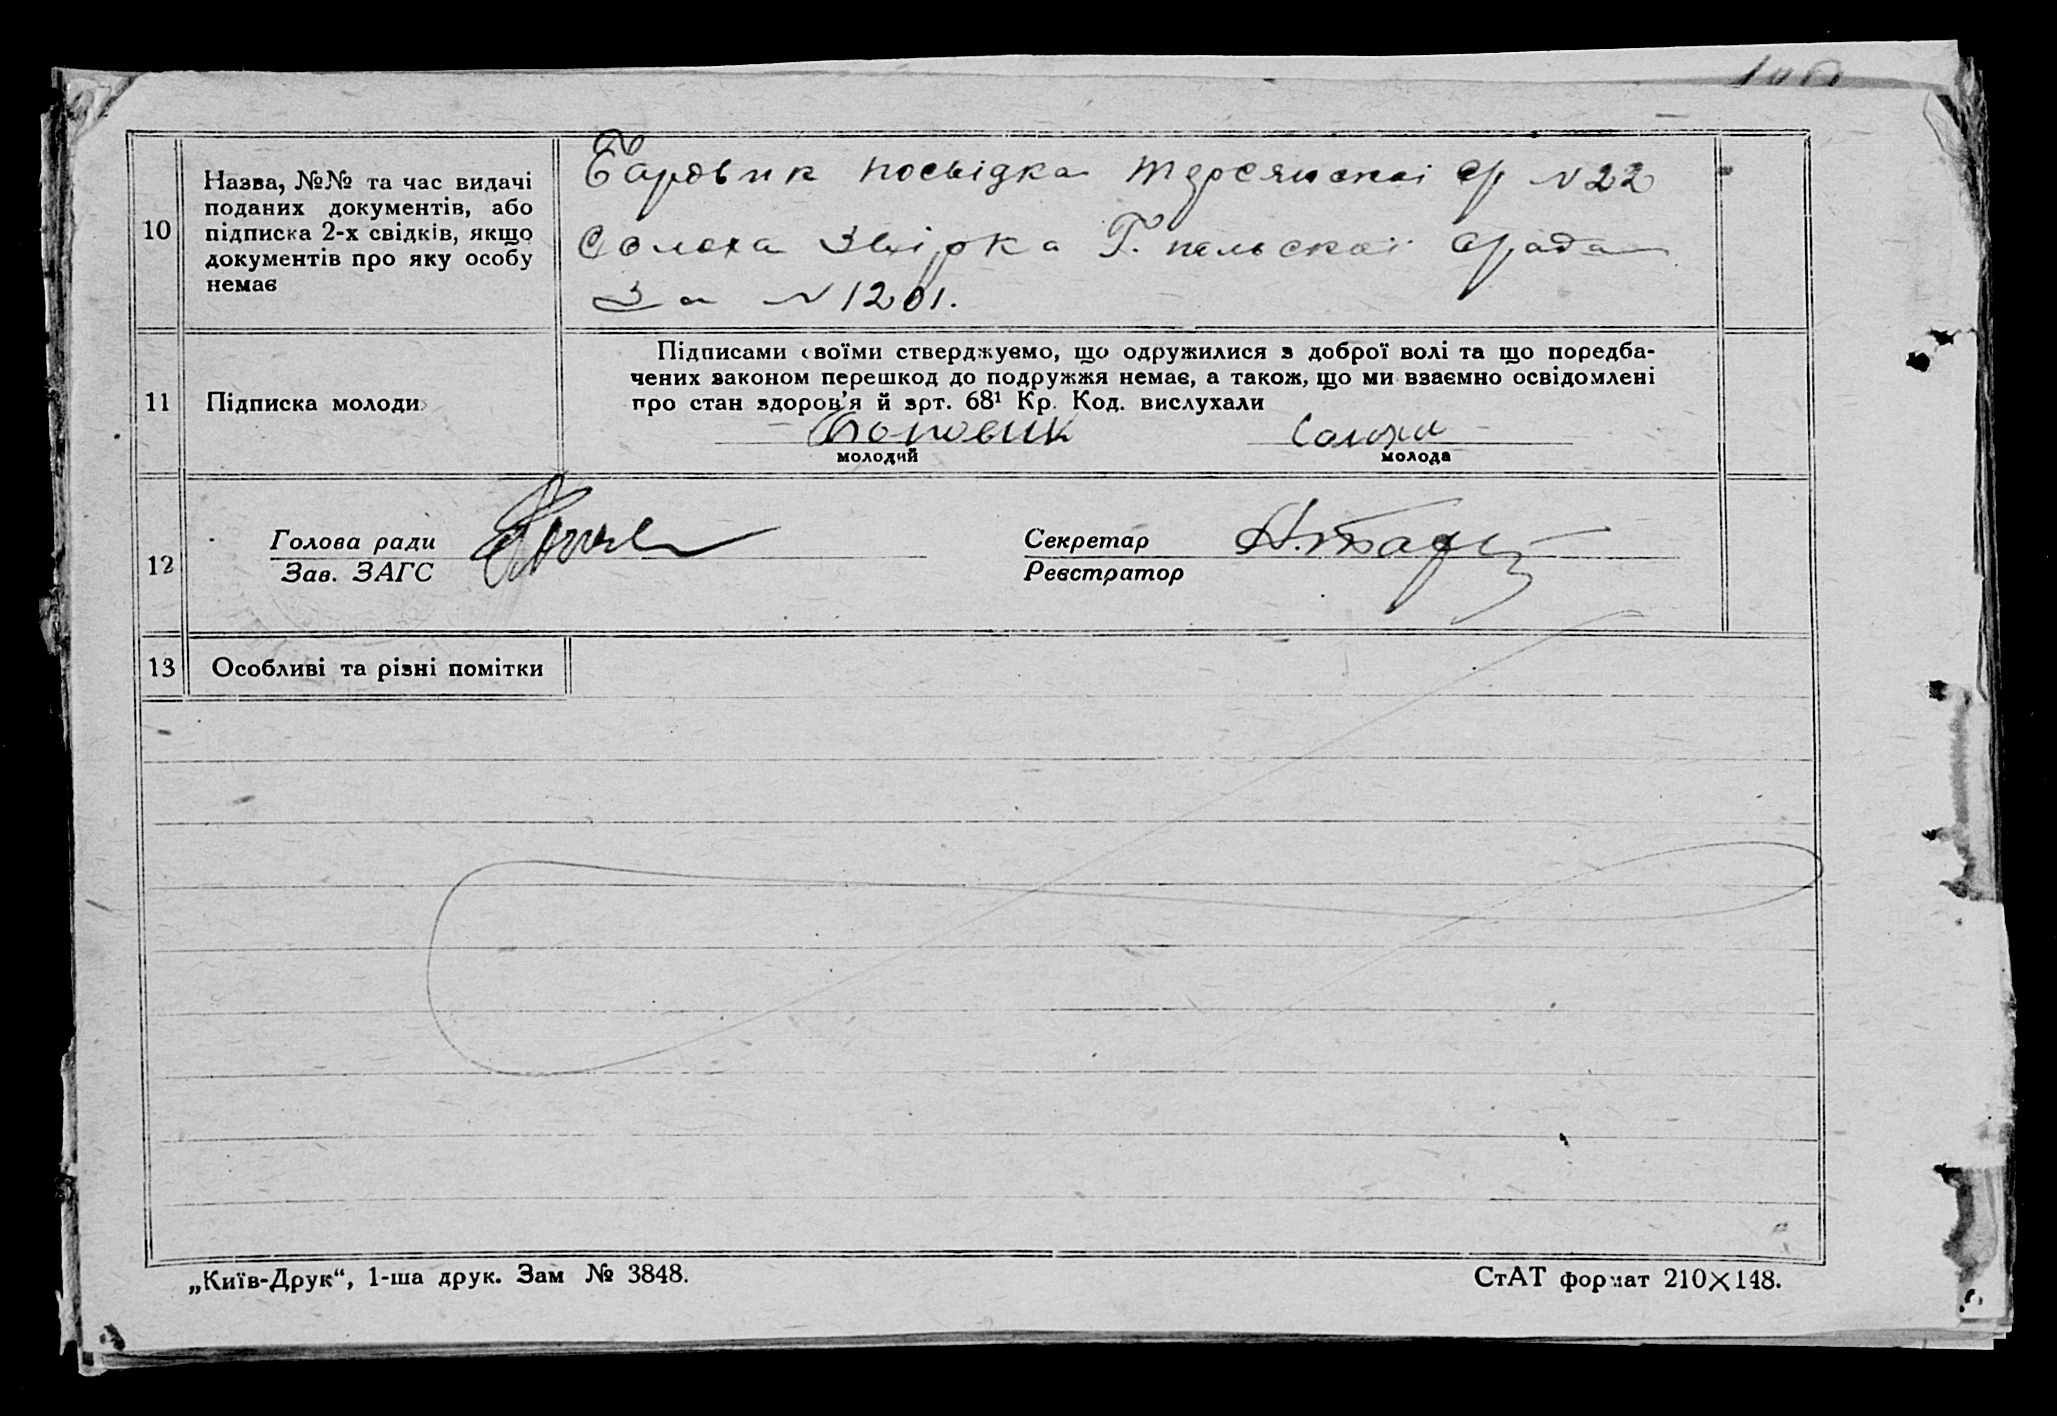 10
Назва, №№ та час видачі
поданих документів, або
підписка 2-х свідків, якщо
документів про яку особу
немає
посвідка ср N 22
Солоха срада
За N 1201.
11
Підписка молоди
Підписами своїми стверджуємо, що одружилися з доброї волі та що поредба-
чених законом перешкод до подружжя немає, а також, що ми взаємно освідомлені
про стан здоров'я й зрт. 68¹ Кр. Код. вислухали
Солоха
молодий молода
12
Голова ради
Зав. ЗАГС
Секретар
Реєстратор
13
Особливі та різні помітки
„Київ-Друк“, 1-ша друк. Зам № 3848.
СтАТ формат 210×148.